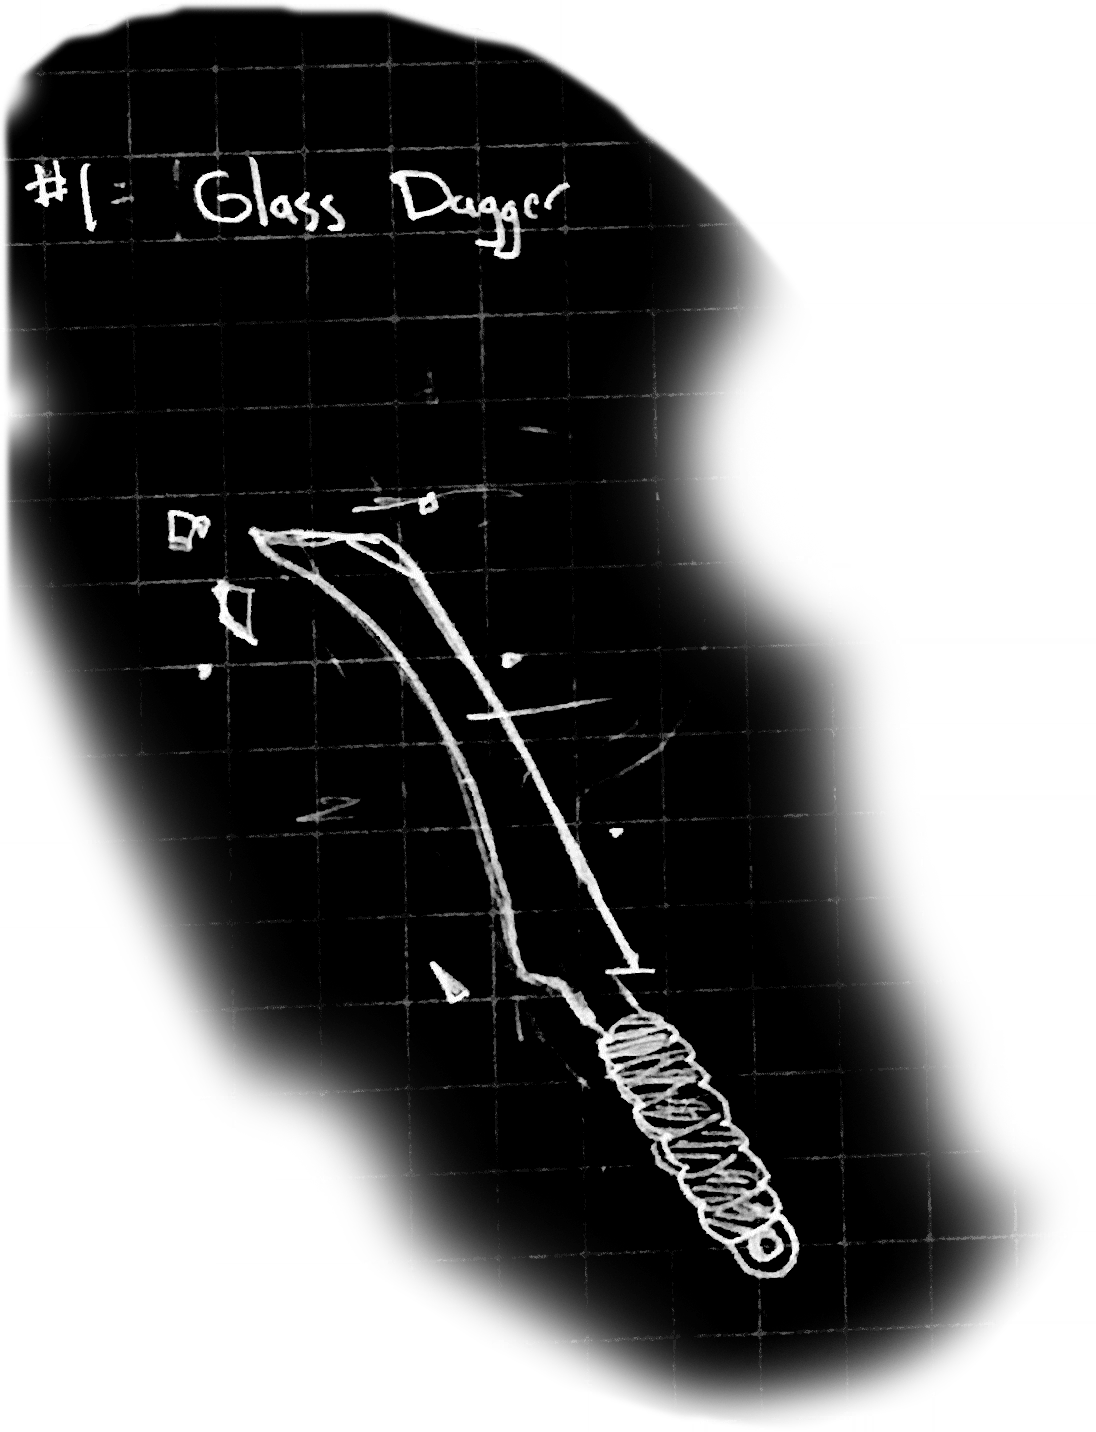 #1= Glass Dagger